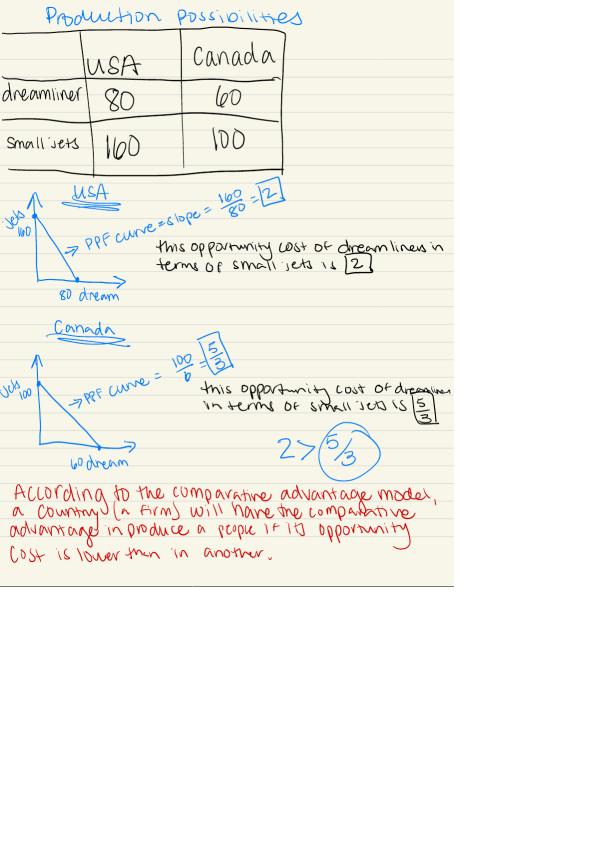 Production possibilities
USA Canada
dreamliner 80 60
small jets 160 100
USA
jets
160
→ PPF curve = slope = 160/80 = 2
this opportunity cost of dreamliners in
terms of small jets is 2
80 dream
Canada
jets
100
→ PPF curve = 100/6 = 5/3
this opportunity cost of dreamliner
in terms of small jets is 5/3
60 dream
2 > 5/3
According to the comparative advantage model,
a country (a firm) will have the comparative
advantage in produce a people if its opportunity
cost is lower then in another.